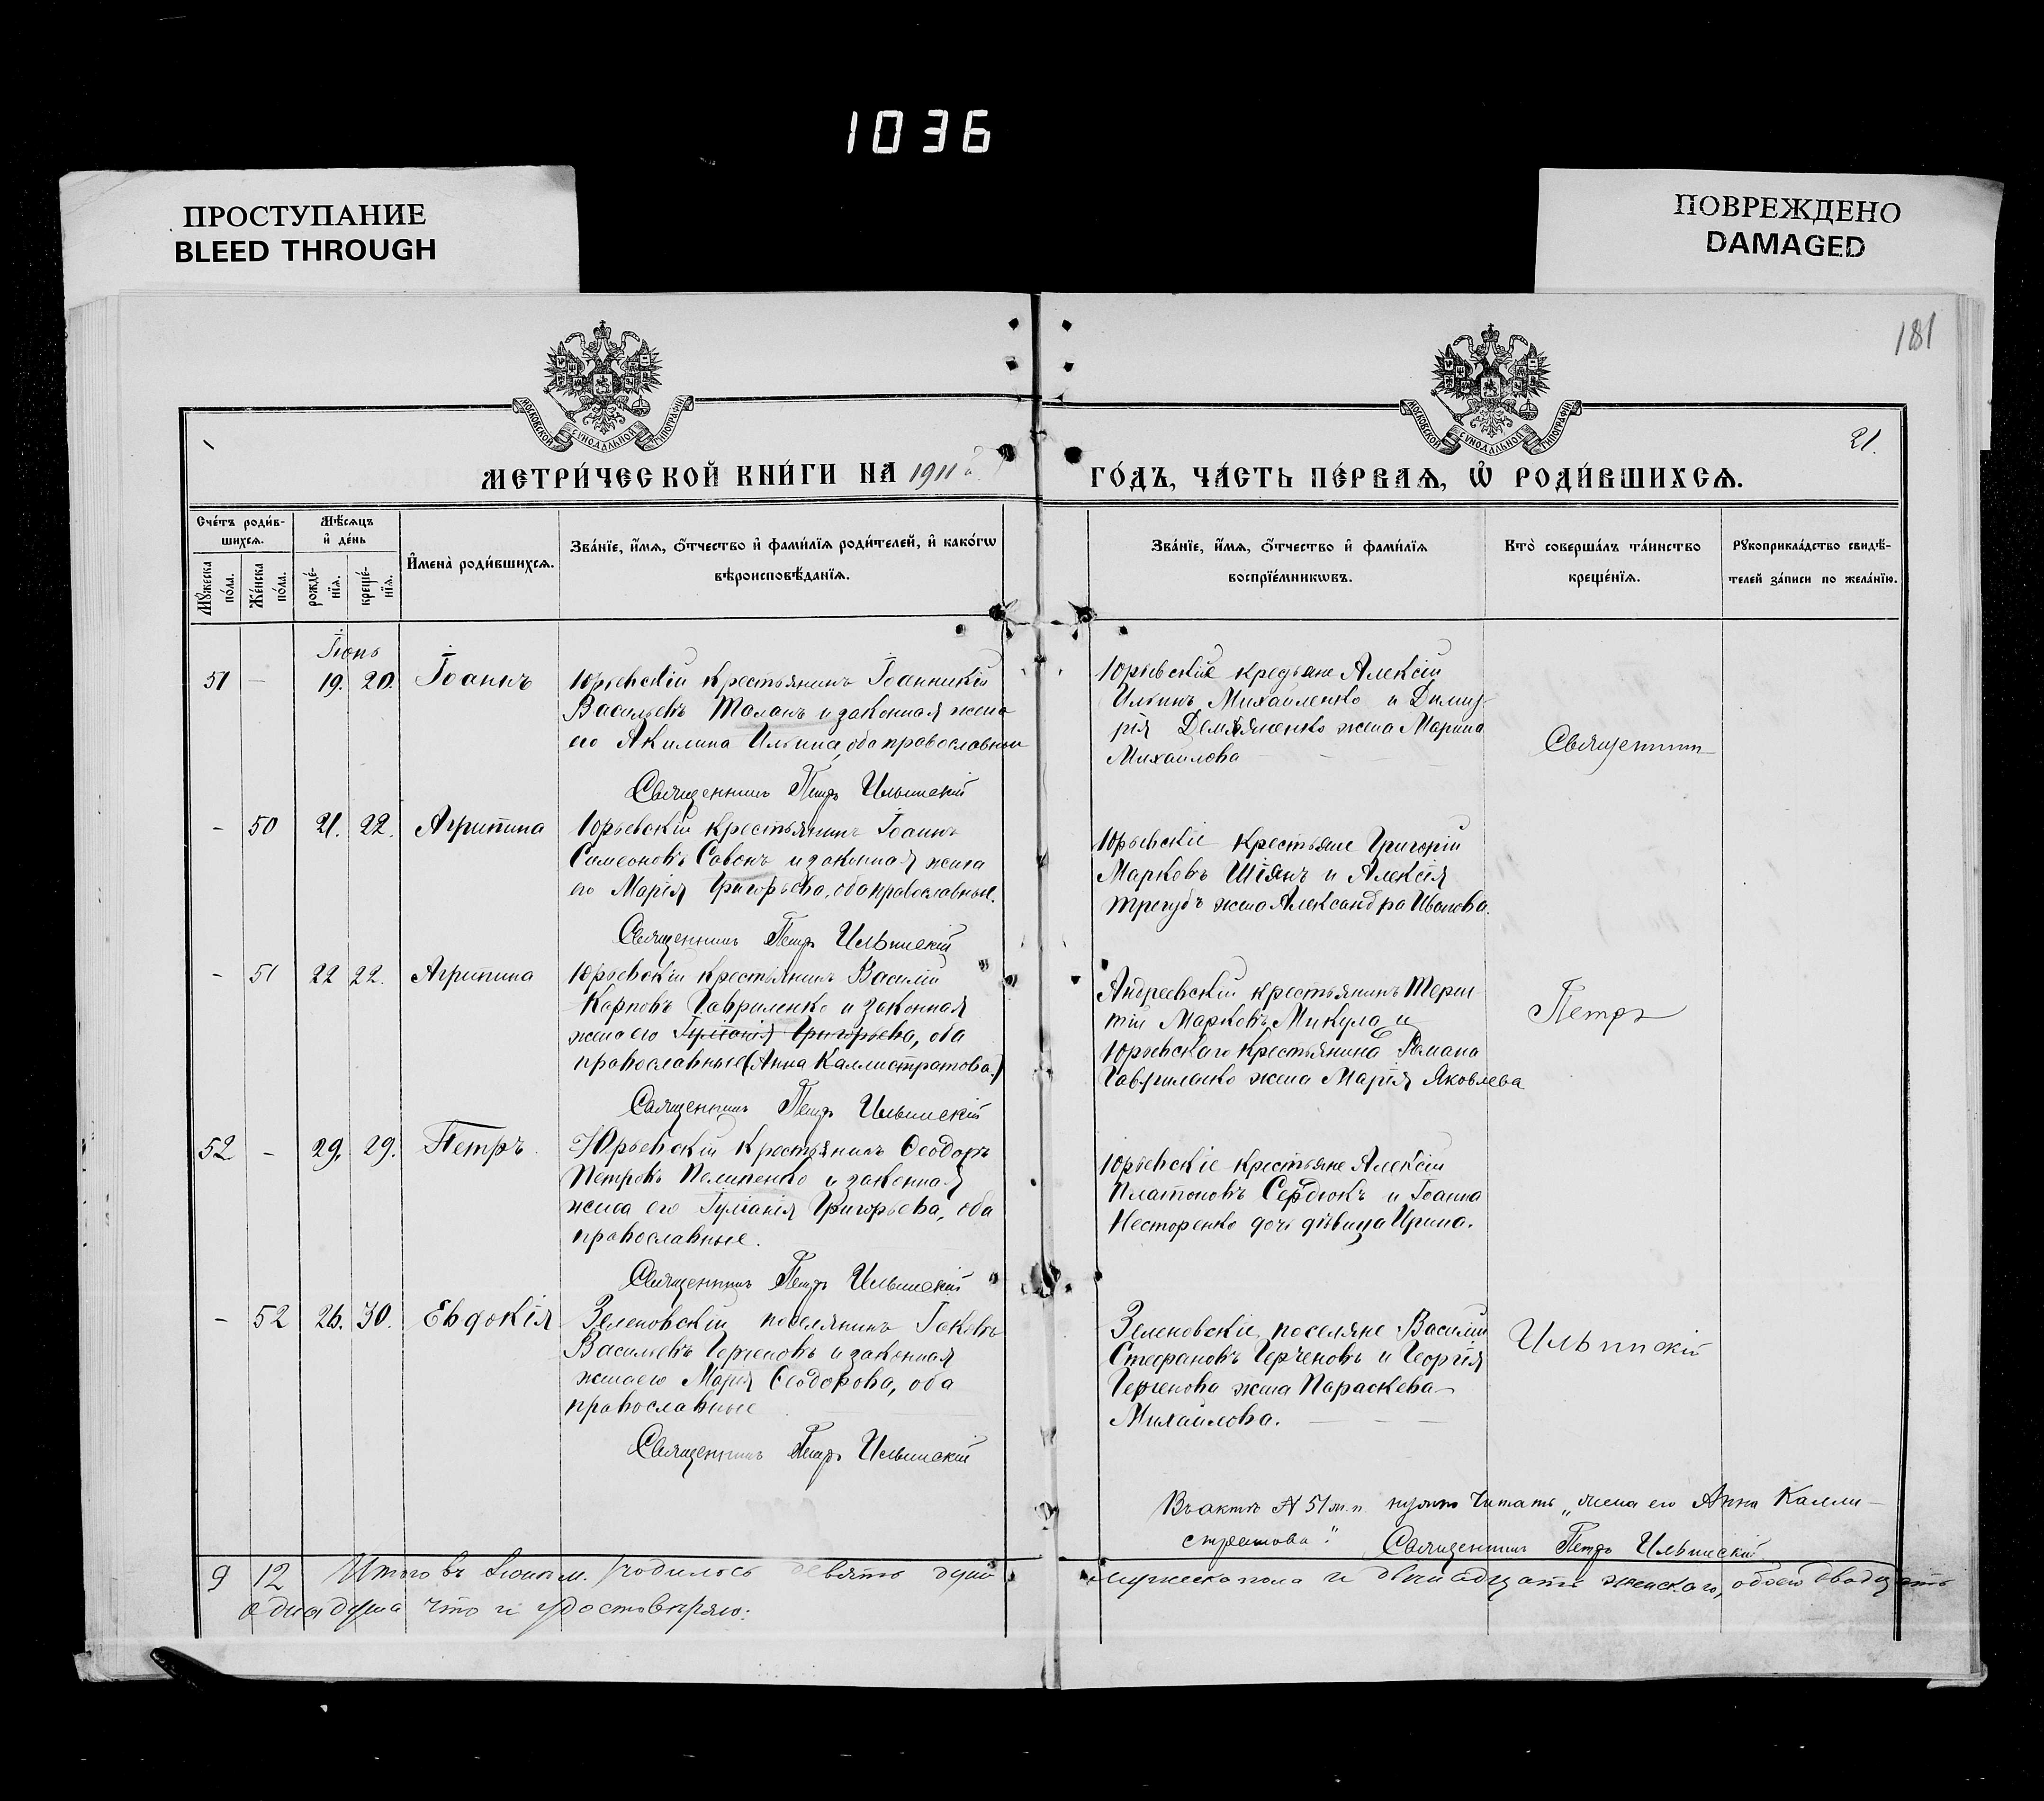 1036
ПРОСТУПАНИЕ
BLEED THROUGH
ПОВРЕЖДЕНО
DAMAGED
181
МОСКОВСКОЙ СѴНОДАЛЬНОЙ ТИПОГРАФІИ
МОСКОВСКОЙ СѴНОДАЛЬНОЙ ТИПОГРАФІИ
21.
МЕТРИ́ЧЕСКОЙ КНИ́ГИ НА 1911 й
ГО́ДЪ, ЧА́СТЬ ПЕ́РВАѦ, Ѽ РОДИ́ВШИХСѦ.
Сче́тъ роди́в-
шихсѧ.
Мꙋжеска по́ла.
Же́нска по́ла.
Мѣ́сѧцъ
и҆ де́нь
рожде́-
нїѧ.
креще́-
нїѧ.
И҆мена̀ роди́вшихсѧ.
Зва́нїе, и҆́мѧ, о҆́тчество и҆ фами́лїѧ роди́телей, и҆ како́гѡ
вѣроисповѣ́данїѧ.
Зва́нїе, и҆́мѧ, о҆́тчество и҆ фами́лїѧ
воспрїе́мникѡвъ.
Кто̀ соверша́лъ та́инство
креще́нїѧ.
Рꙋкоприкла́дство свидѣ́-
телей за́писи по жела́нїю.
Іюнь
51 — 19. 20. Іоаннъ
Юрьевскій крестьянинъ Іоанникій
Васильевъ Таланъ и законная жена
его Акилина Ильина, оба православные
Священникъ Петръ Ильинскій
Юрьевскіе кредьяне Алексій
Ильинъ Михайленко и Димит-
рія Демьяненко жена Марина
Михайлова
Священник
- 50 21. 22. Агрипина
Юрьевскій крестьянинъ Іоаннъ
Симеоновъ Савонъ и законная жена
его Марія Григорьева, оба православные.
Священникъ Петръ Ильинскій
Юрьевскіе крестьяне Григорій
Марковъ Шіянъ и Алексія
Трегубъ жена Александра Иванова.
- 51 22 22. Агрипина
Юрьевскій крестьянинъ Василій
Карповъ Гавриленко и законная
жена его Гуліанія Григорьева, оба
православные (Анна Каллистратова.)
Священникъ Петръ Ильинскій
Андреевскій крестьянинъ Терен-
тій Марковъ Микула и
Юрьевскаго крестьянина Романа
Гавриленко жена Марія Яковлева
Петръ
52 - 29. 29. Петръ.
Юрьевскій крестьянинъ Ѳеодоръ
Петровъ Пилипенко и законная
жена его Іуліанія Григорьева, оба
православные.
Священникъ Петръ Ильинскій
Юрьевскіе крестьяне Алексій
Платоновъ Сердюкъ и Іоанна
Несторенко дочь дѣвица Ирина.
- 52 26. 30. Евдокія
Зеленовскій поселянинъ Іаковъ
Васильевъ Герченовъ и законная
жена его Марія Ѳеодорова, оба
православные
Священникъ Петръ Ильинскій
Зеленовскіе поселяне Василій
Стефановъ Герченовъ и Георгія
Герченова жена Параскева
Михайлова.
Ильинскій
Въ актѣ № 51 ж. п. нужно читать „жена его Анна Калли-
стратова". Священникъ Петръ Ильинскій
9 12 Итого въ Іюнѣ м. родилось девять душъ мужеска пола и двѣнадцать женскаго, обоего двадцать
одна душа что и удостовѣряю.